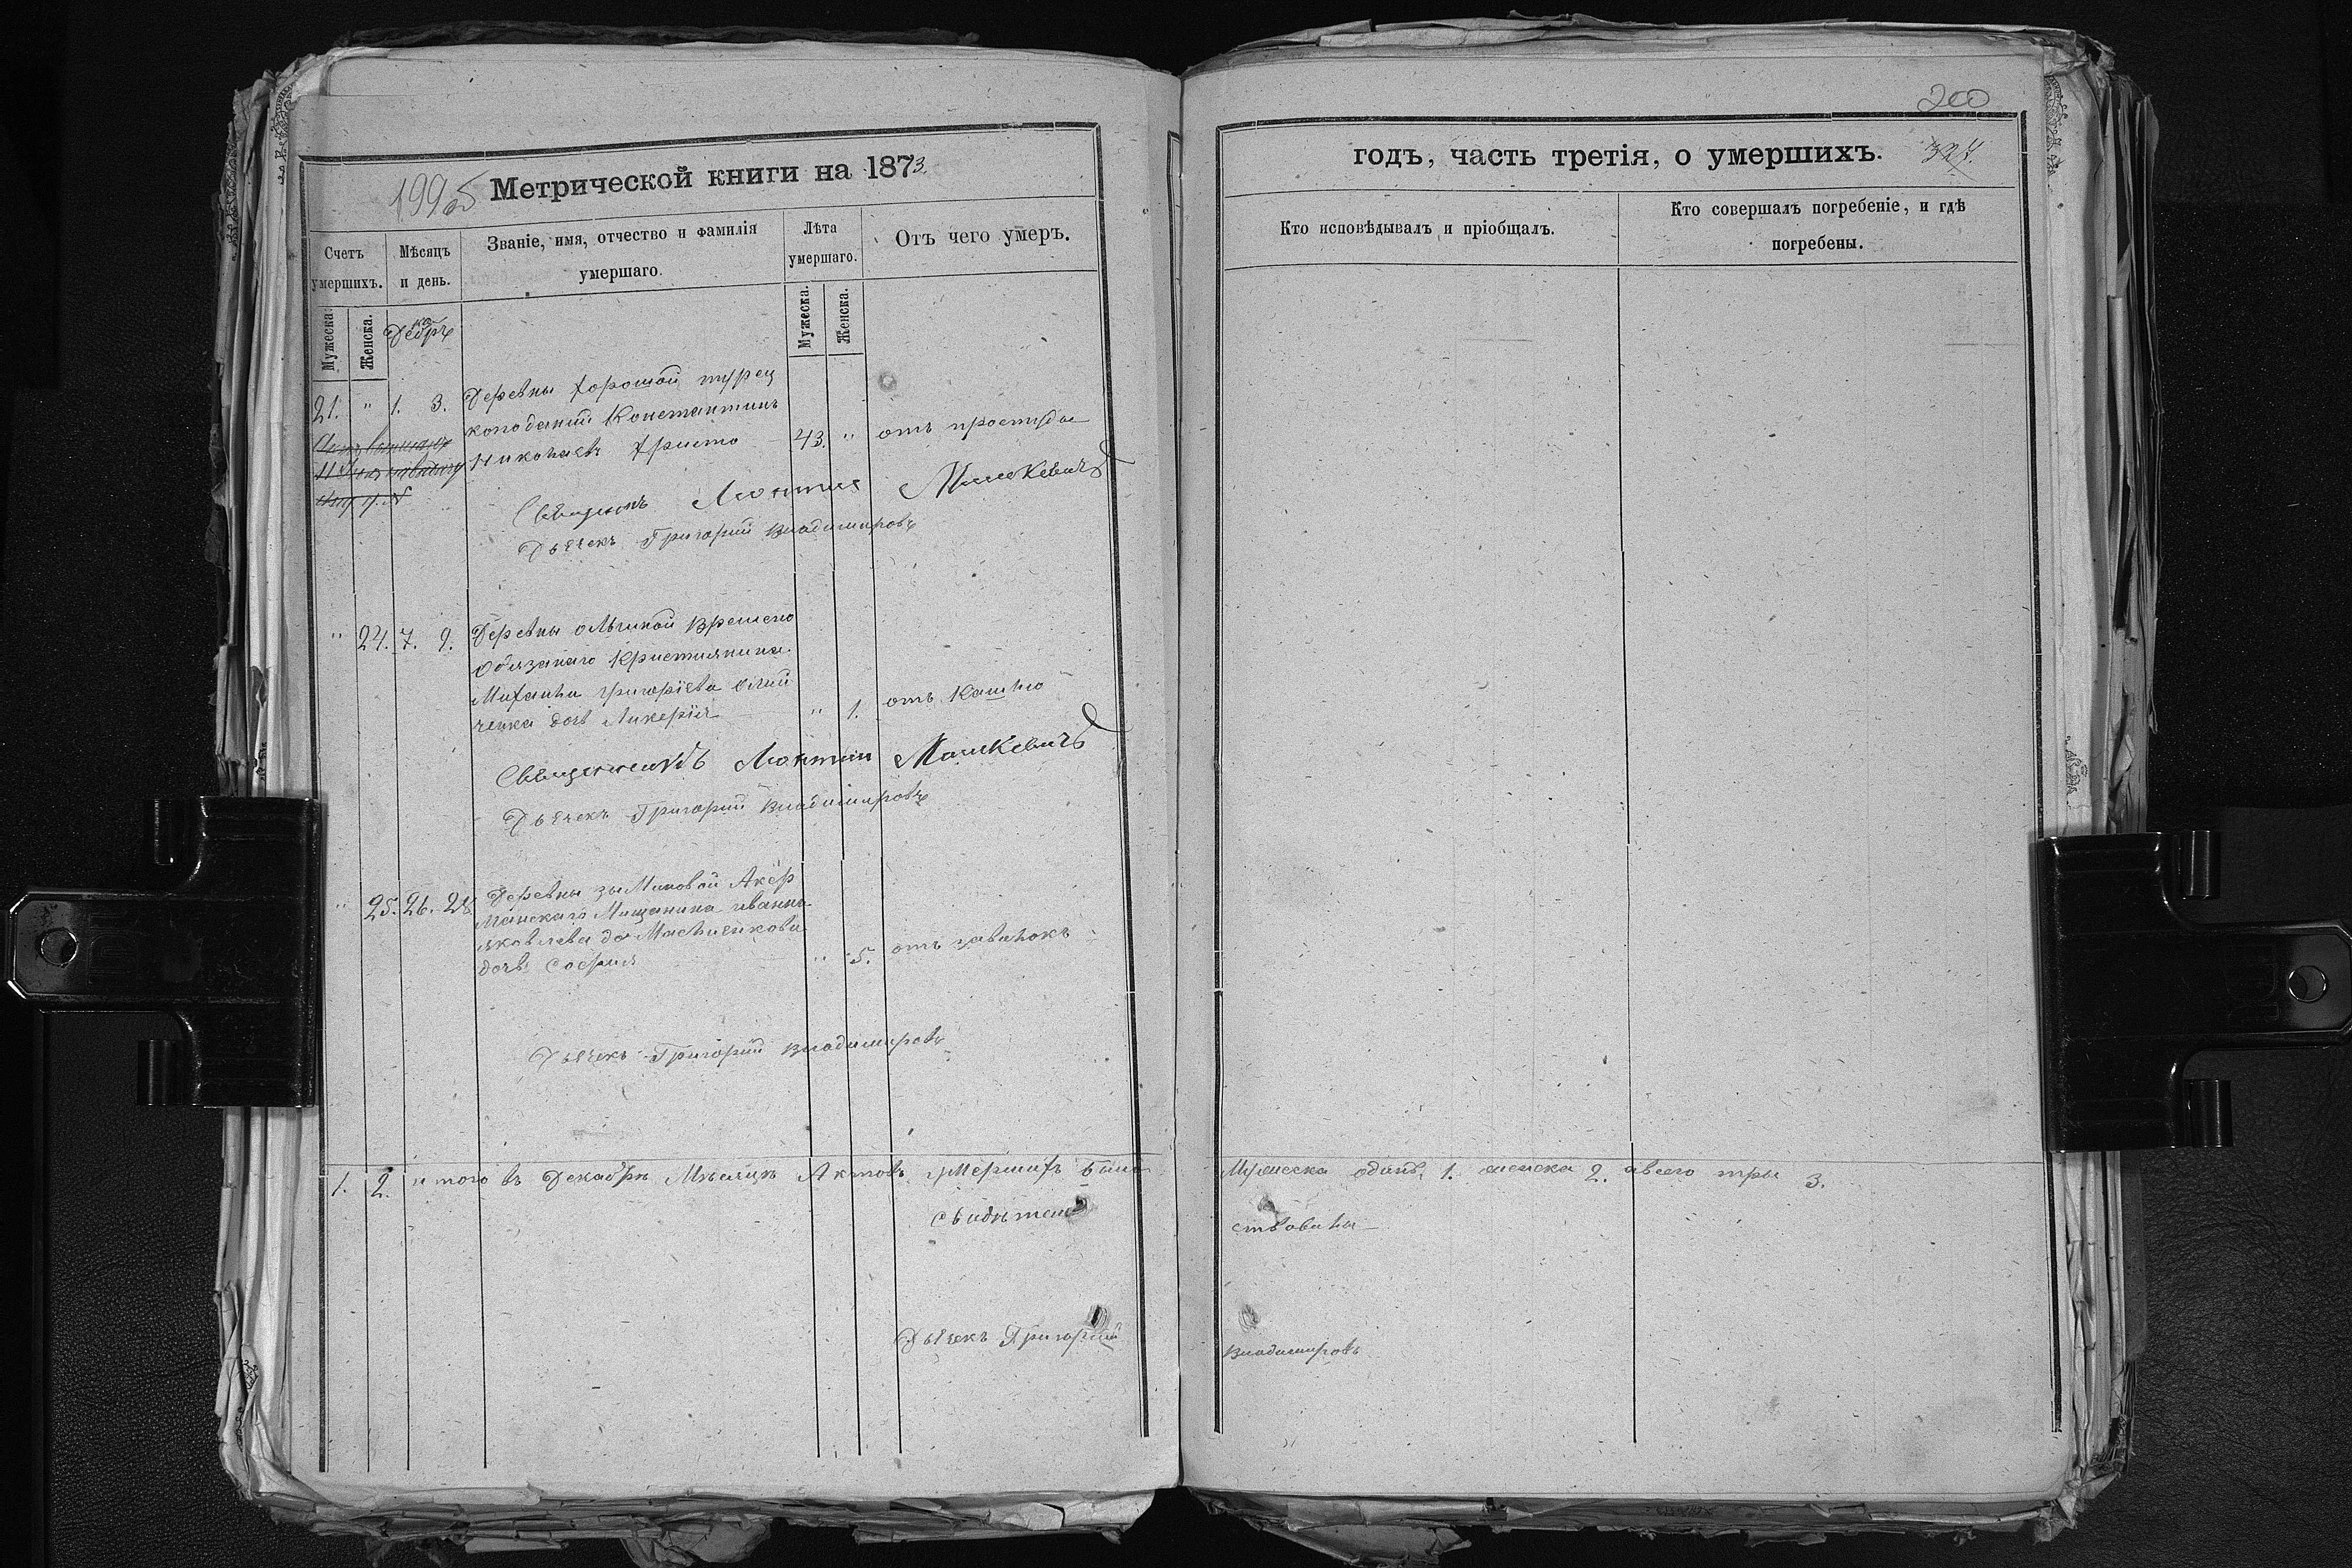 200
199об
Метрической книги на 1873.
годъ, часть третія, о умершихъ.
327.
Счетъ умершихъ.
Мѣсяцъ и день.
Званіе, имя, отчество и фамилія умершаго.
Лѣта умершаго.
Отъ чего умеръ.
Кто исповѣдывалъ и пріобщалъ.
Кто совершалъ погребеніе, и гдѣ погребены.
Мужеска.
Женска.
Мужеска.
Женска.
21. " 1. 3. Деревны Хорошой турец
коподаный Константинъ
Николаевъ Христо 43. " отъ простуды
Священникъ Леонтий Машкевичъ
Дьячекъ Григорий Владимировъ
" 24. 7. 9. Деревны временно
обязанаго Кристиянина
Михаила григоріева
дочь Ликерия " 1. отъ Кашлю
Священникъ Леонтий Машкевичъ
Дьячекъ Григорий Владимировъ
" 25. 26. 28. Деревны Акер
манскаго Мищанина иванна
яковлева
дочь София " 5. отъ завалокъ
Дьячекъ Григорий Владимировъ
1. 2. итого въ Декабрѣ Мѣсяцѣ Актовъ умершихъ было Мужеска одинъ 1. женска 2. авсего три 3.
свидѣтель ствовалы
Дьячекъ Григорий Владимировъ